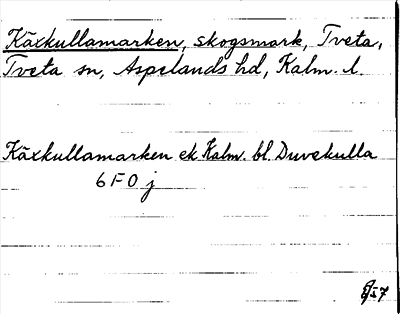 Käxkullamarken, skogsmark, Tveta,
Tveta sn, Aspelands hd, Kalm. l.
Käxkullamarken ek. Kalm. bl. Duvekulla
6 F 0 j
57